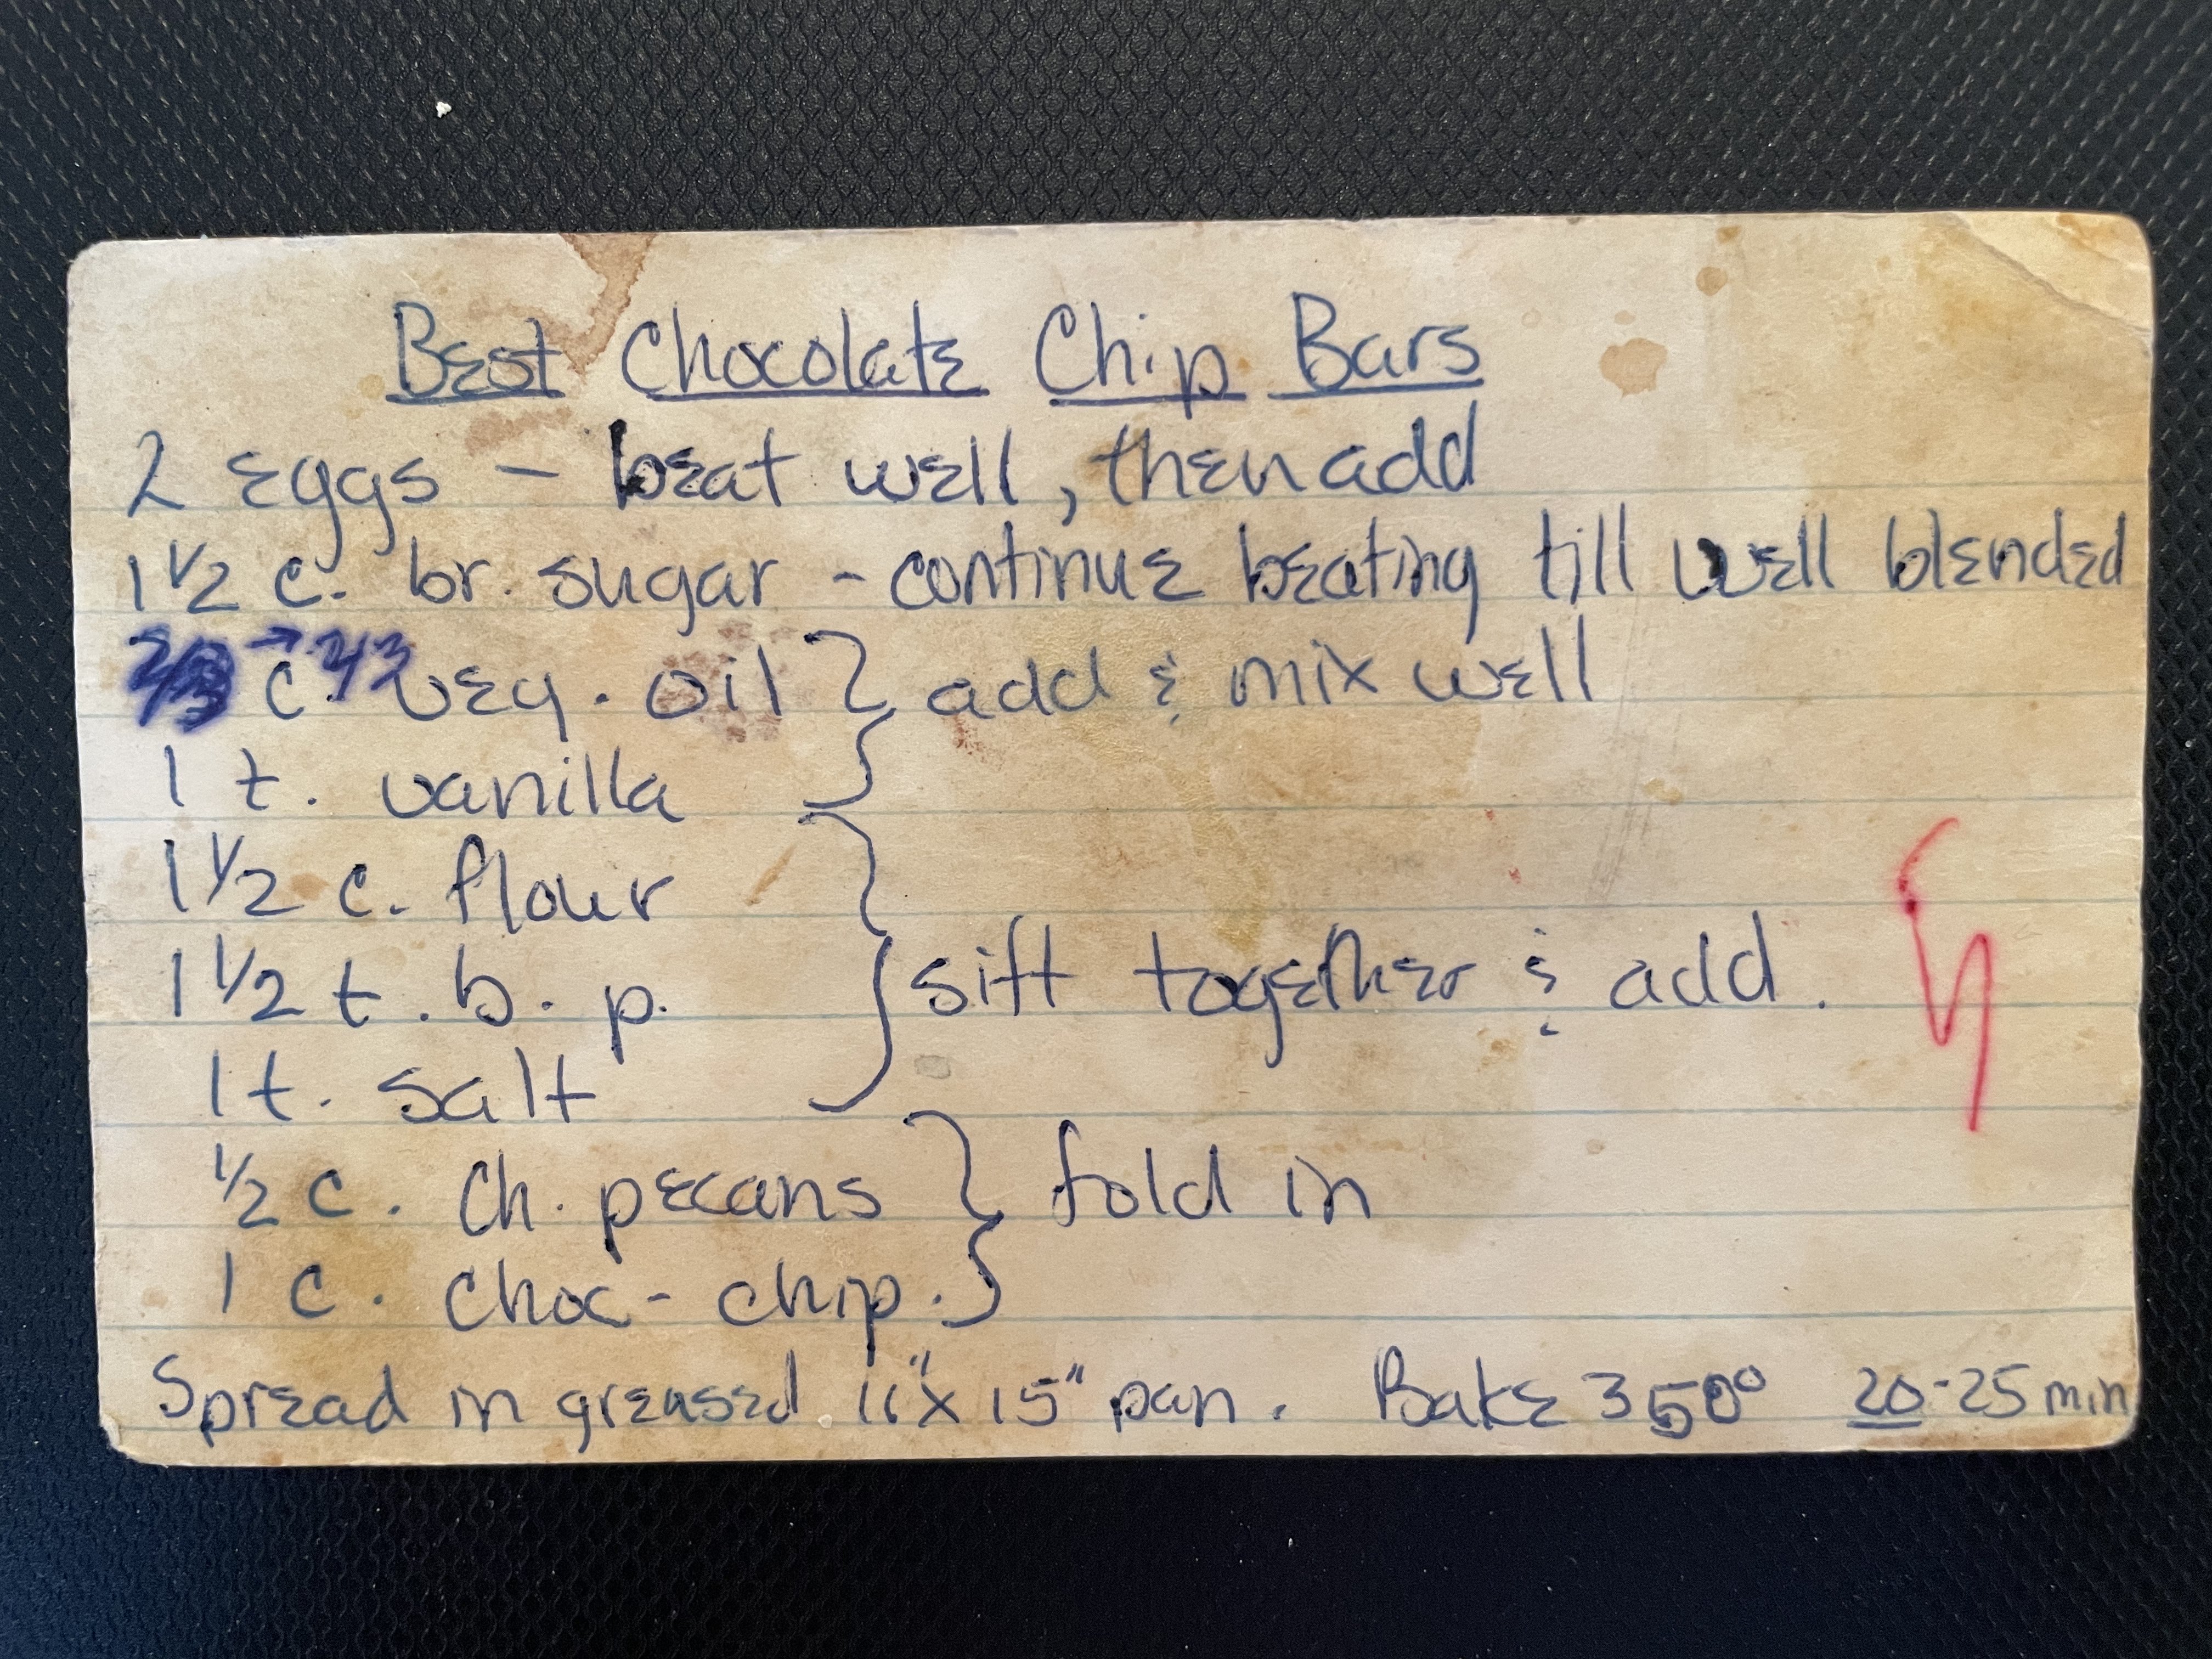 Best Chocolate Chip Bars
2 eggs - beat well, then add
1 1/2 c. br. sugar - continue beating till well blended
2/3 → 2/3 c. veg. oil } add & mix well
1 t. vanilla
1 1/2 c. flour
1 1/2 t. b. p. } sift together & add.
1 t. salt
1/2 c. Ch. pecans } fold in
1 c. choc-chip.
Spread in greased 11"x15" pan. Bake 350° 20-25 min